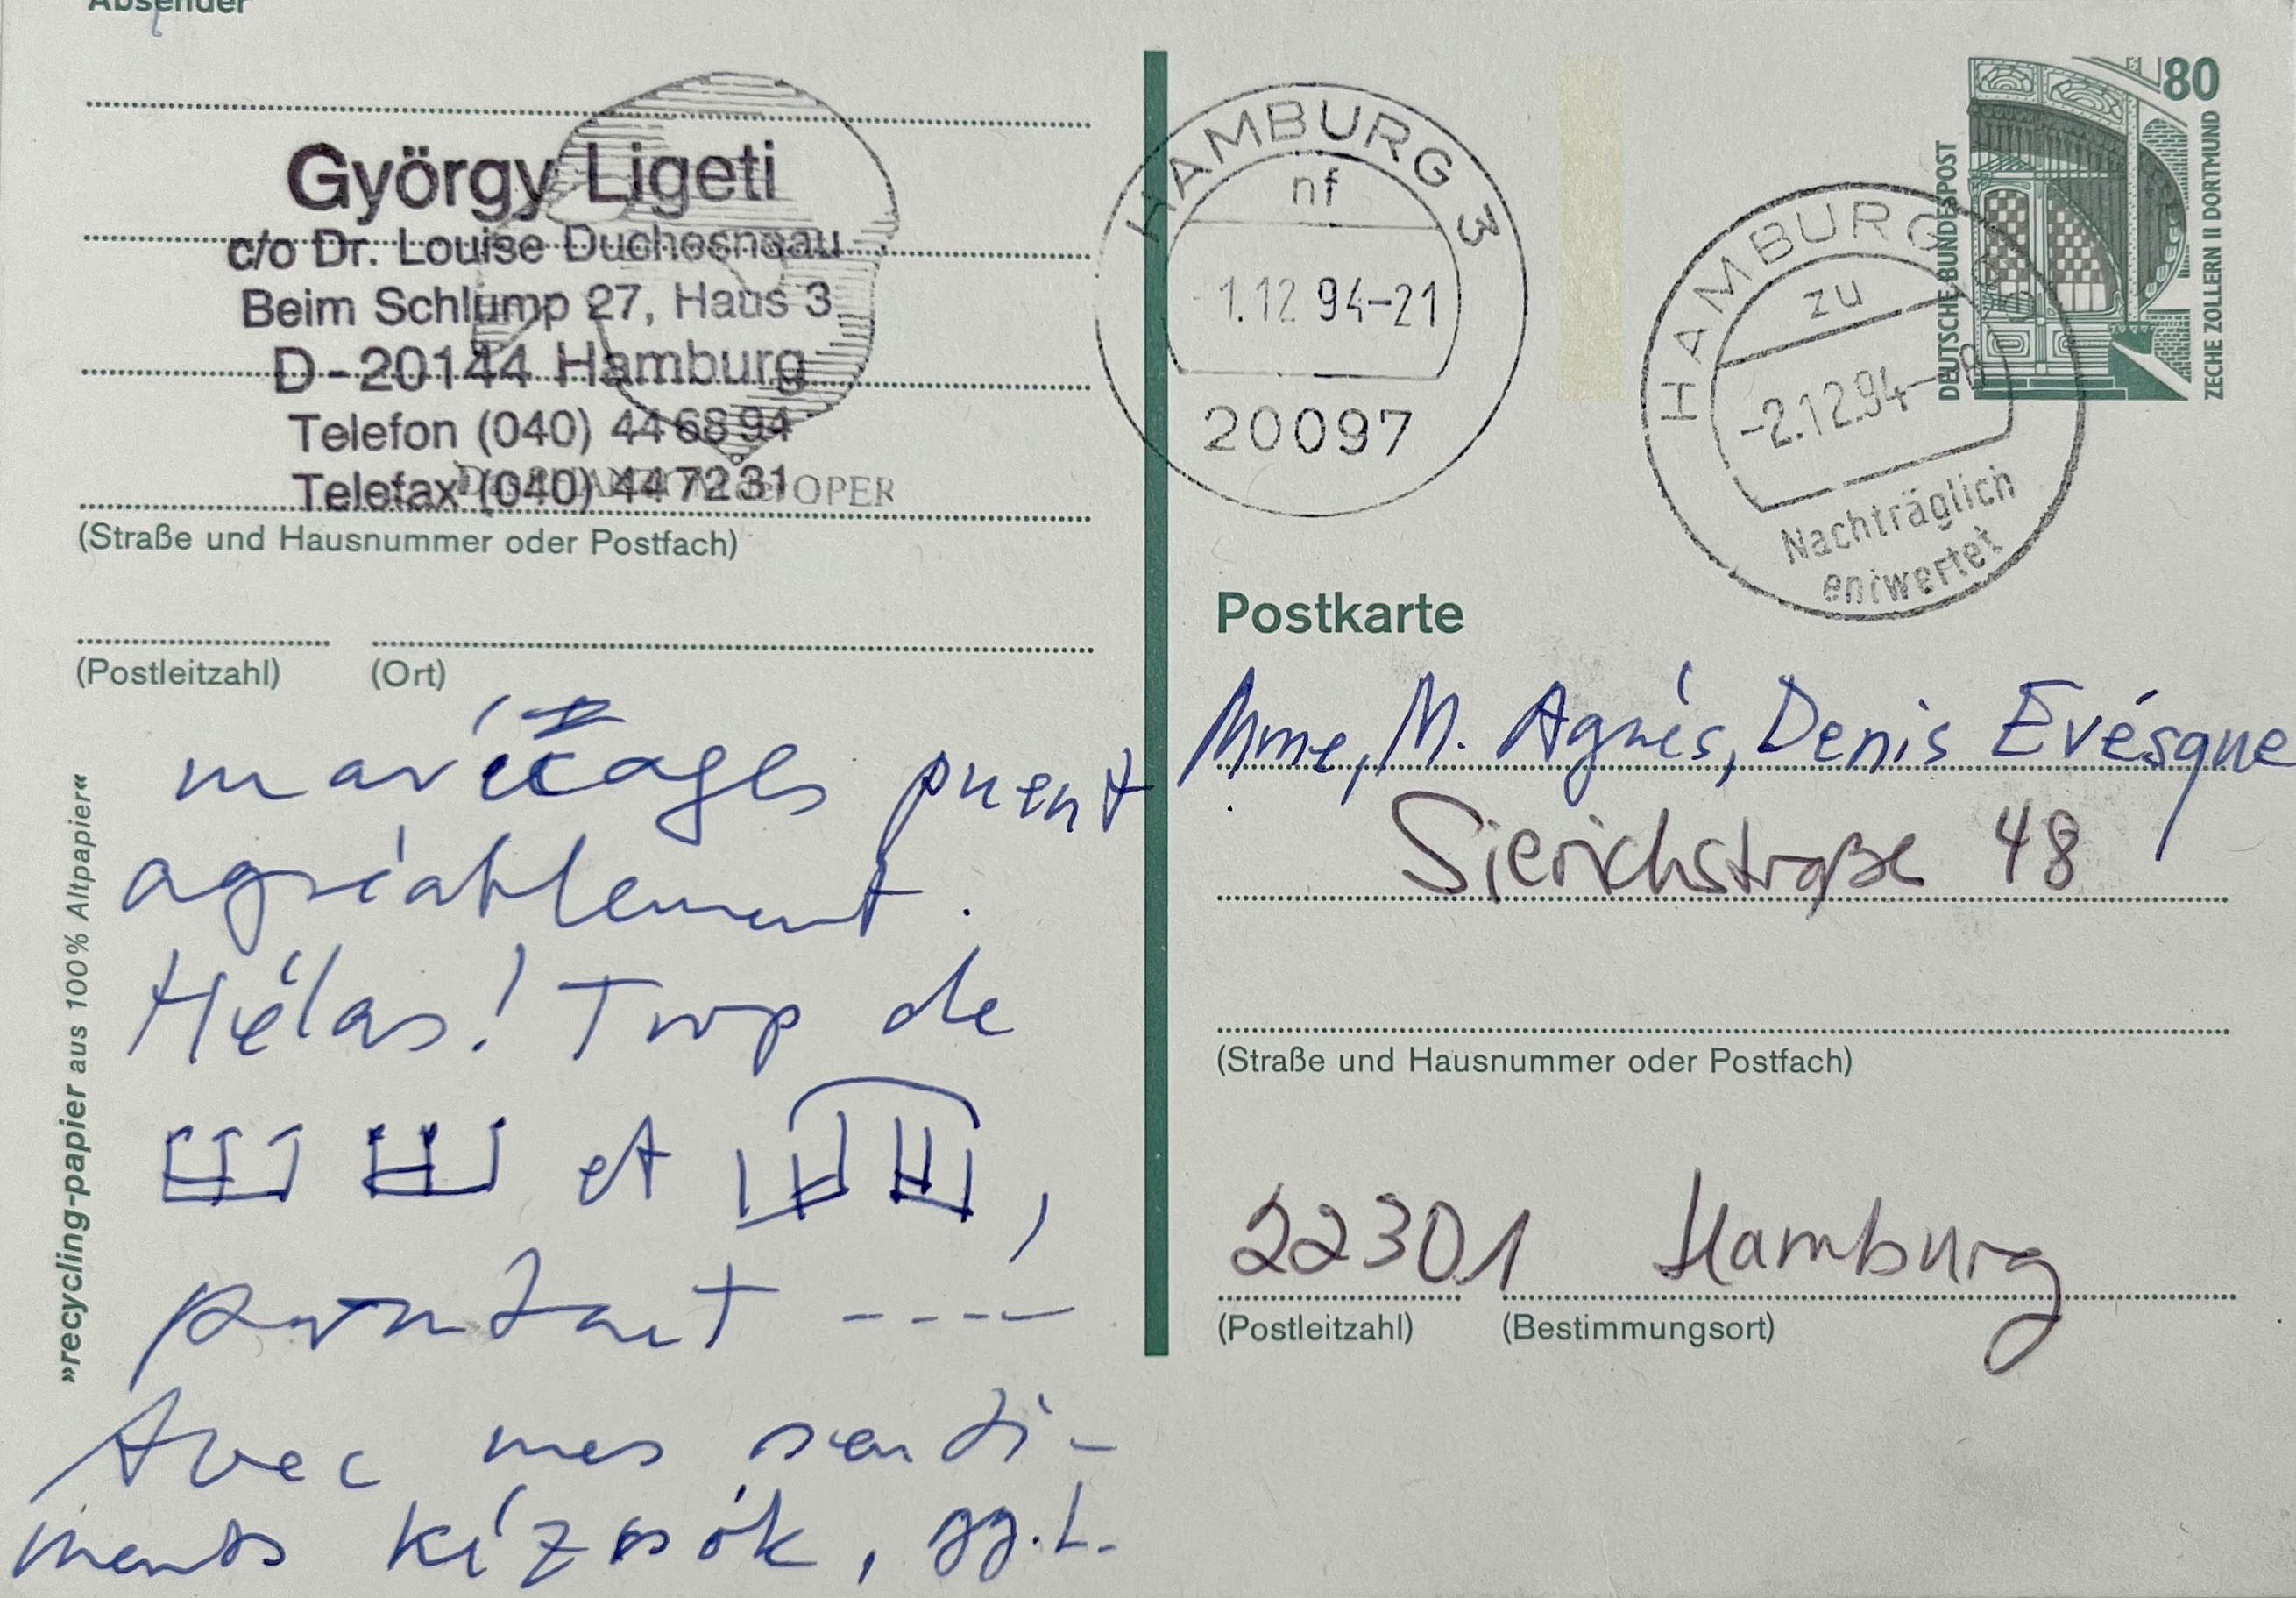 Absender
György Ligeti
c/o Dr. Louise Duchesneau
Beim Schlump 27, Haus 3
D-20144 Hamburg
Telefon (040) 44 68 94
Telefax (040) 44 72 31
OPER
(Straße und Hausnummer oder Postfach)
(Postleitzahl) (Ort)
»recycling-papier aus 100% Altpapier«
puent
agréablement.
Hélas! Trop de
et ,
pourtant ----
Avec mes senti-
ments kézcsók, gy. L.
HAMBURG 3
nf
1.12 94-21
20097
HAMBURG
zu
-2.12.94-
Nachträglich
entwertet
80
DEUTSCHE BUNDESPOST
ZECHE ZOLLERN II DORTMUND
Postkarte
Mme, M. Agnès, Denis Evésque
Sierichstraße 48
(Straße und Hausnummer oder Postfach)
22301 Hamburg
(Postleitzahl) (Bestimmungsort)